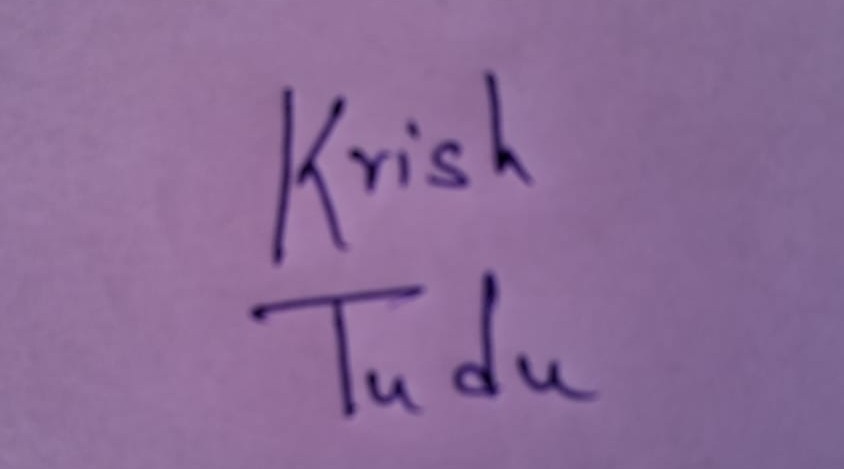 Krish
Tudu